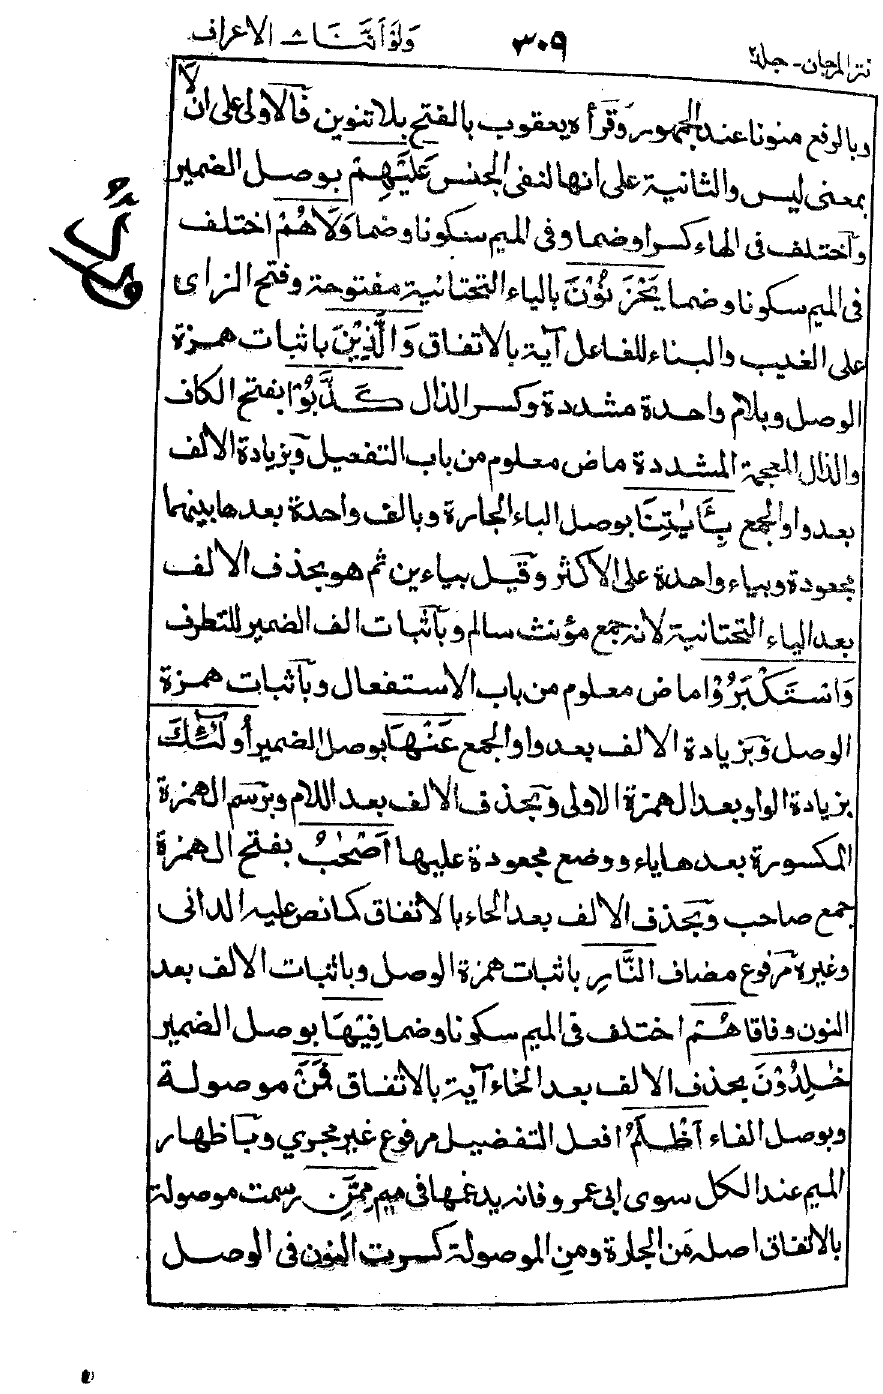 نثر المرجان - جلد۲ ۳۰۹ ولو أننا ۸ الاعراف
وبالرفع منونا عند الجمهور وقرأه يعقوب بالفتح بلا تنوين فالاولى على ان لا
بمعنى ليس والثانية على انها لنفى الجنس عَلَيْهِمْ بوصل الضمير
واختلف فى الهاء كسرا وضما وفى الميم سكونا وضما وَلَا هُمْ اختلف
فى الميم سكونا وضما يَحْزَنُوْنَ بالياء التحتانية مفتوحة وفتح الزاى
على الغيب والبناء للفاعل آية بالاتفاق وَالَّذِيْنَ باثبات همزة
الوصل وبلام واحدة مشددة وكسر الذال كَذَّبُوْا بفتح الكاف
والذال المعجمة المشددة ماض معلوم من باب التفعيل وبزيادة الالف
بعد واو الجمع بِـَٔايٰتِنَا بوصل الباء الجارة وبالف واحدة بعدها بينهما
مجعودة وبياء واحدة على الاكثر وقيل بياءين ثم هو بحذف الالف
بعد الياء التحتانية لانه جمع مؤنث سالم وباثبات الف الضمير للتطرف
وَاسْتَكْبَرُوْا ماض معلوم من باب الاستفعال وباثبات همزة
الوصل وبزيادة الالف بعد واو الجمع عَنْهَا بوصل الضمير أُولٰٓئِكَ
بزيادة الواو بعد الهمزة الاولى وبحذف الالف بعد اللام وبرسم الهمزة
المكسورة بعدها ياء ووضع مجعودة عليها أَصْحٰبُ بفتح الهمزة
جمع صاحب وبحذف الالف بعد الحاء بالاتفاق كما نص عليه الدانى
وغيره مرفوع مضاف النَّارِ باثبات همزة الوصل وباثبات الالف بعد
النون وفاقا هُمْ اختلف فى الميم سكونا وضما فِيْهَا بوصل الضمير
خٰلِدُوْنَ بحذف الالف بعد الخاء آية بالاتفاق فَمَنْ موصولة
وبوصل الفاء أَظْلَمُ افعل التفضيل مرفوع غير مجري وباظهار
الميم عند الكل سوى ابى عمرو فانه يدغمها فى ميم مِمَّنِ رسمت موصولة
بالاتفاق اصله مَن الجارة ومنِ الموصولة كسرت النون فى الوصل